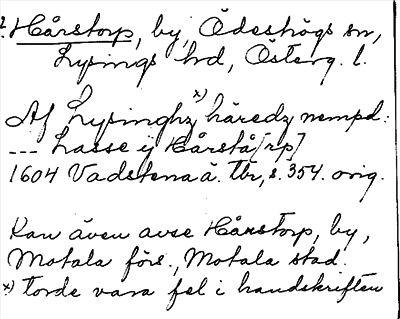 ?. Hårstorp, by, Ödeshögs sn,
Lysings hd, Österg. l.
Af Lysinghz x) häredz nempd:
--- Lasse ij Hårstå[rp]
1604 Vadstena ä. tbr, s. 354. orig.
Kan även avse Hårstorp, by,
Motala förs., Motala stad.
x) torde vara fel i handskriften